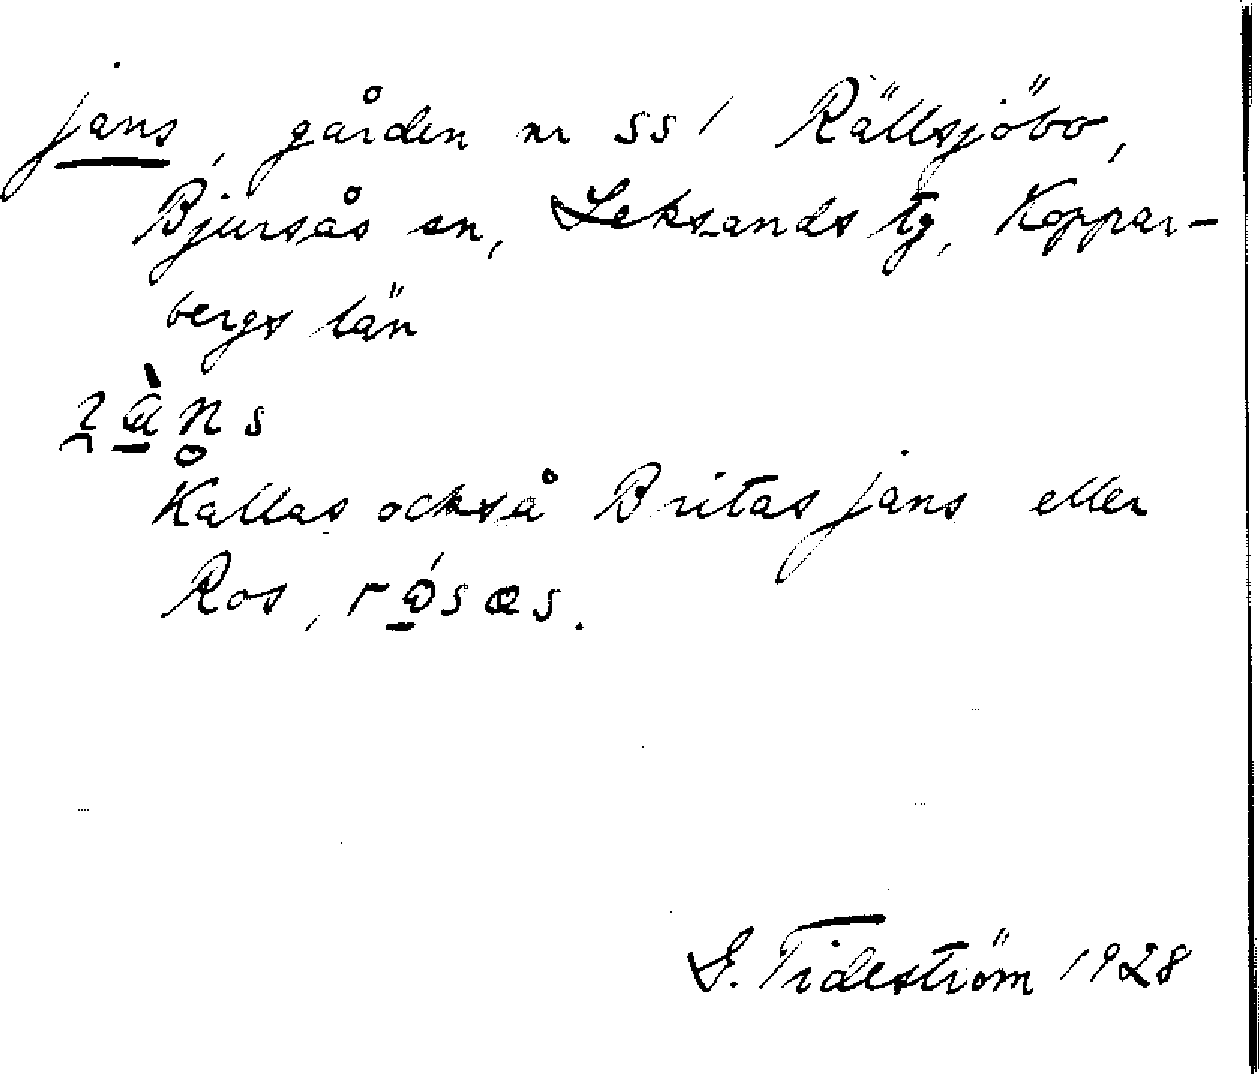 jans, gården nr 55 i Rällsjöbo,
Bjursås sn, Leksands tg, Koppar-
bergs län
Kallas också Britas jans eller
Ros,
G. Tideström 1928